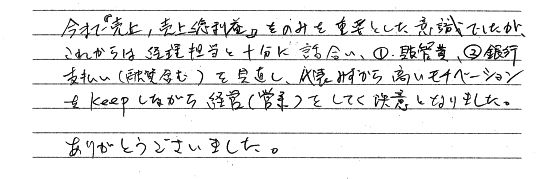 今まで『売上，売上総利益』をのみを重要とした意識でしたが、
これからは経理担当と十分に話合い、①.販管費、②銀行
支払い(融資含む)を見直し、代表みずから高いモチベーション
をkeepしながら経営(営業)をしてく決意となりました。
ありがとうございました。